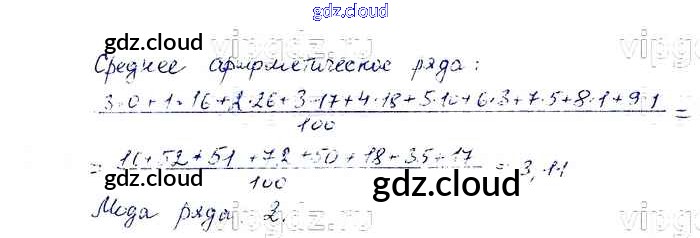 gdz.cloud
gdz.cloud
Среднее арифметическое ряда:
3·0+1·16+2·26+3·17+4·18+5·10+6·3+7·5+8·1+9·1
100
=
= 16+52+51+72+50+18+35+17
100
= 3,11
gdz.cloud
gdz.cloud
Мода ряда: 2.